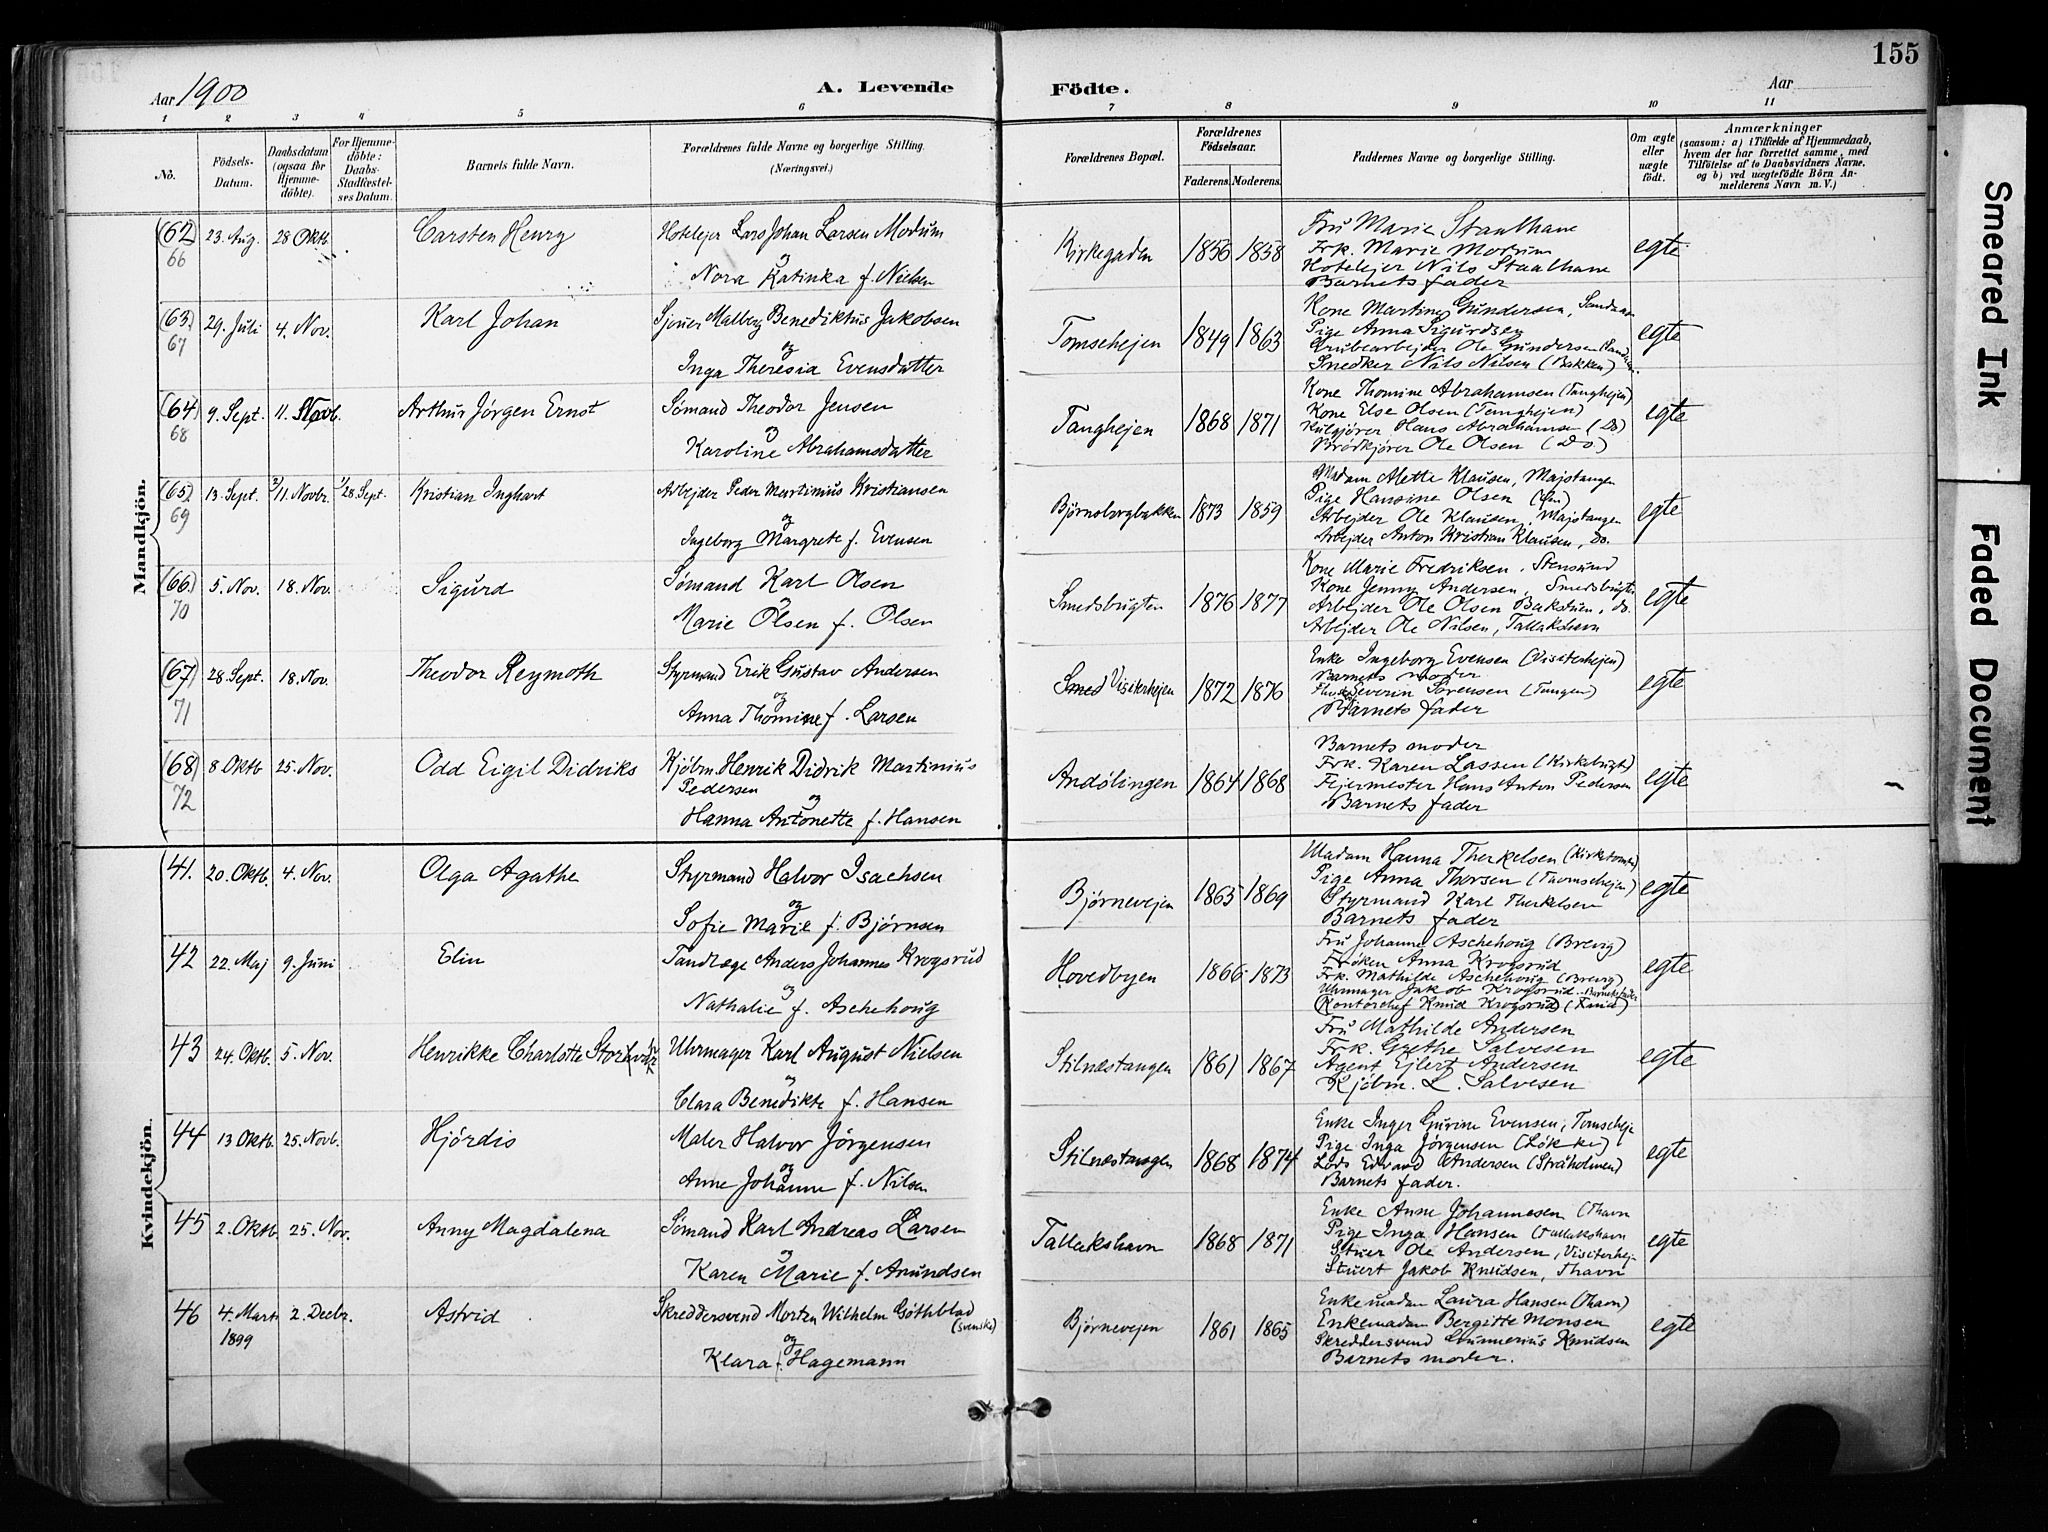 155
Aar 1900
A. Levende Födte.
Aar
1 2 3 4 5 6 7 8 9 10 11
No.
Födsels-Datum.
Daabsdatum (ogsaa for Hjemmedöbte).
For Hjemmedöbte: Daabs-Stadfæstelses Datum.
Barnets fulde Navn.
Forældrenes fulde Navne og borgerlige Stilling. (Næringsvei.)
Forældrenes Bopæl.
Forældrenes Födselsaar.
Faderens. Moderens.
Faddernes Navne og borgerlige Stilling.
Om ægte eller uægte födt.
Anmærkninger
(saasom: a) i Tilfælde af Hjemmedaab, hvem der har forrettet samme, med Tilföielse af to Daabsvidners Navne, og b) ved uægtefödte Börn Anmelderens Navn m. V.)
Mandkjön.
(62) 66 23. Aug. 28 Oktb. Carsten Henry
Hotelejer Lars Johan Larsen Modum
og
Nora Katinka f. Nielsen
Kirkegaden 1856 1858
Fru Marie Staalhane
Frk. Marie Modum
Hotelejer Nils Staalhane
Barnets fader
egte
(63) 67 29. Juli 4. Nov. Karl Johan
Sjouer Malberg Benediktus Jakobsen
og
Inga Theresia Evensdatter
Tomsehejen 1849 1863
Kone Martine Gundersen,
Pige Anna Sigurdsen
Grubearbejder Ole Gundersen
Snedker Nils Nilsen (Bakken)
egte
(64) 68 9. Sept. 11. Novb. Arthur Jörgen Ernst
Sömand Theodor Jensen
og
Karoline Abrahamsdatter
Tanghejen 1868 1871
Kone Thomine Abrahamsen (Tanghejen)
Kone Else Olsen (Tanghejen)
Hans Abrahamsen (Do)
Brödkjörer Ole Olsen (Do)
egte
(65) 69 13. Sept. 2/11. Novbr. 1/28. Sept. Kristian Inghart
Arbejder Peder Martinius Kristiansen
og
Ingeborg Margrete f. Evensen
Björnsbergbakken 1873 1859
Madam Alette Klausen, Majstangen
Pige Hansine Olsen
Arbejder Ole Klausen, Majstangen
Arbejder Anton Kristian Klausen, do.
egte
(66) 70 5. Nov. 18. Nov. Sigurd
Sömand Karl Olsen
og
Marie Olsen f. Olsen
Smedsbugten 1876 1877
Kone Marie Fredriksen, Stensund
Kone Jenny Andersen, Smedsbugten
Arbejder Ole Olsen Bakstuen, do.
Arbejder Ole Nilsen, Tallakshavn
egte
(67) 71 28. Sept. 18. Nov. Theodor Reymoth
Styrmand Erik Gustav Andersen
og
Anna Thomine f. Larsen
Smed Visiterhejen 1872 1876
Enke Ingeborg Evensen (Visiterhejen)
Barnets moder
Severin Sörensen (Tangen)
Barnets fader
egte
(68) 72 8 Oktb. 25. Nov. Odd Eigil Didriks
Kjöbm. Henrik Didrik Martinius
Pedersen
og
Hanna Antonette f. Hansen
Andölingen 1864 1868
Barnets moder
Frk. Karen Lassen (Kirkebugt)
Fejermester Hans Anton Pedersen
Barnets fader
egte
Kvindekjön.
41. 20. Oktb. 4. Nov. Olga Agathe
Styrmand Halvor Isachsen
og
Sofie Marie f. Björnsen
Björnevejen 1865 1869
Madam Hanna Therkelsen (Kirketomten)
Pige Anna Thorsen
Styrmand Karl Therkelsen
Barnets fader
egte
42 22. Maj 9. Juni Elin
Tandlæge Anders Johannes Krogsrud
og
Nathalie f. Aschehoug
Hovedbyen 1866 1873
Fru Johanne Aschehoug (Brevig)
Fröken Anna Krogsrud
Frk. Mathilde Aschehoug (Brevig)
Uhrmager Jakob Krogsrud. Barnets fader
Kontorchef Knud Krogsrud
egte
43 24. Oktb. 5. Nov. Henrikke Charlotte
Uhrmager Karl August Nielsen
og
Clara Benedikte f. Hansen
Stilnæstangen 1861 1867
Fru Mathilde Andersen
Frk. Grethe Salvesen
Agent Ejlert Andersen
Kjöbm. L. Salvesen
egte
44 13 Oktb. 25. Novb. Hjördis
Maler Halvor Jörgensen
og
Anne Johanne f. Nilsen
Stilnæstangen 1868 1874
Enke Inger Gurine Evensen, Tomsehejen
Pige Inga Jörgensen
Lods Edvard Andersen (Stråholmen)
Barnets fader.
egte
45 2. Oktb. 25. Nov. Anny Magdalena
Sömand Karl Andreas Larsen
og
Karen Marie f. Amundsen
Tallakshavn 1868 1871
Enke Anne Johannesen (Thavn
Pige Inga Hansen (Tallakshavn
Ole Andersen, Visiterhej
Stuert Jakob Knudsen, Thavn
egte
46 4. Marts 1899 2. Decbr. Astrid
Skreddersvend Morten Wilhelm Göthblad
(svenske)
og
Klara f. Hagemann
Björnevejen 1861 1865
Enkemadam Laura Hansen (Thavn)
Enkemadam Bergitte Monsen
Skreddersvend Knudsen
Barnets moder.
egte
Smeared Ink
Faded Document